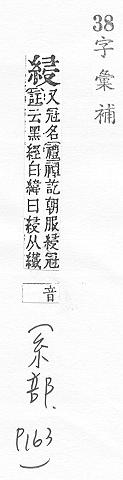 38字彙補
綅又冠名禮禫訖朝服綅冠
註云黑經白緯曰綅从纖
音
(糸部. P163)